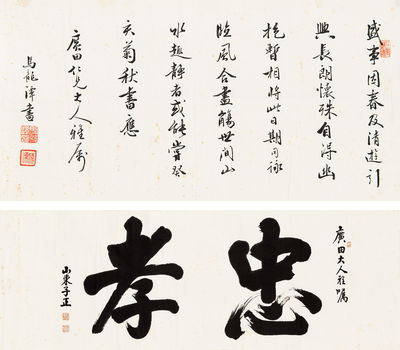 盛事因春及清遊引
興長朗懷殊自得幽
抱暫相將此日期同詠
臨風合盡觴世間山
水趣靜者或能嘗癸
亥菊秋書應
廣田仁兄大人雅属
馬龍潭書
廣田大人雅嘱
忠孝
山東子正